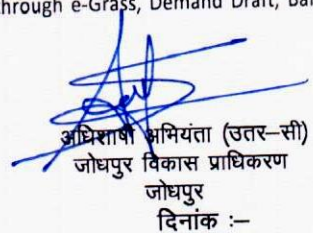 through e-Grass, Demand Draft, Ba
अधिशाषी अभियंता (उतर–सी)
जोधपुर विकास प्राधिकरण
जोधपुर
दिनांक :–